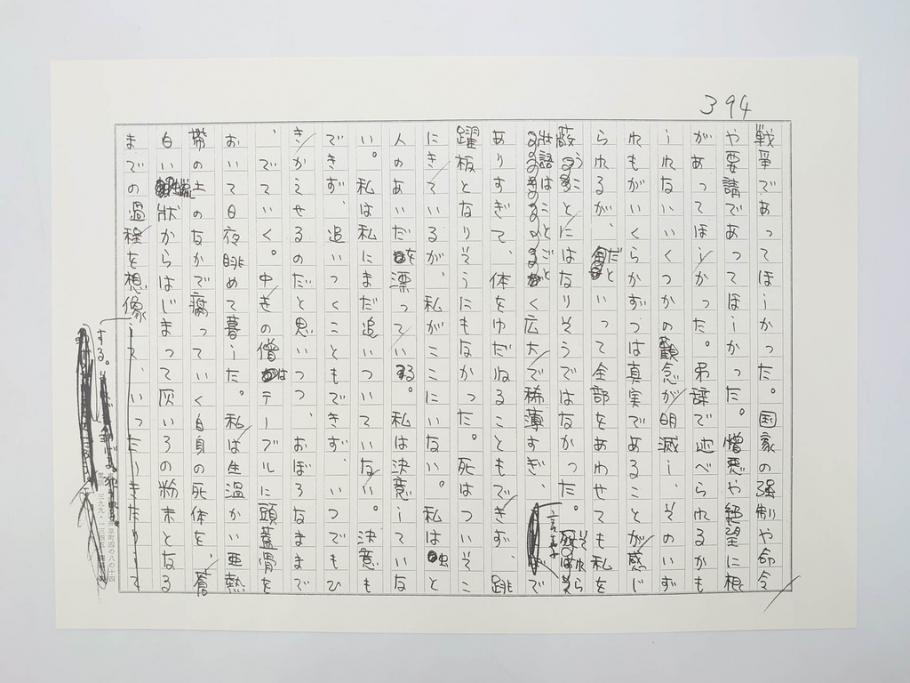 394
戦争であってほしかった。国家の強制や命令
や要請であってほしかった。憎悪や絶望に根
があってほしかった。弔辞で述べられるかも
しれないいくつかの観念が明滅し、そのいず
れもがいくらかずつは真実であることが感じ
られるが、だといって全部をあわせても私を
敵うことにはなりそうではなかった。それら
壮語はことごとく広大で稀薄すぎ、言葉で
ありすぎて、体をゆだねることもできず、跳
躍板となりそうにもなかった。死はついそこ
にきているが、私がここにいない。私は虫と
人のあいだを漂っている。私は決意していな
い。私は私にまだ追いついていない。決意も
できず、追いつくこともできず、いつでもひ
きかえせるのだと思いつつ、おぼろなままで
、でていく。中きの僧はテーブルに頭蓋骨を
おいて日夜眺めて暮した。私は生温かい亜熱
帯の土のなかで腐っていく自身の死体を、蒼
白い蝋状からはじまって灰いろの粉末となる
までの過程を想像して、いったりきたりして
する。